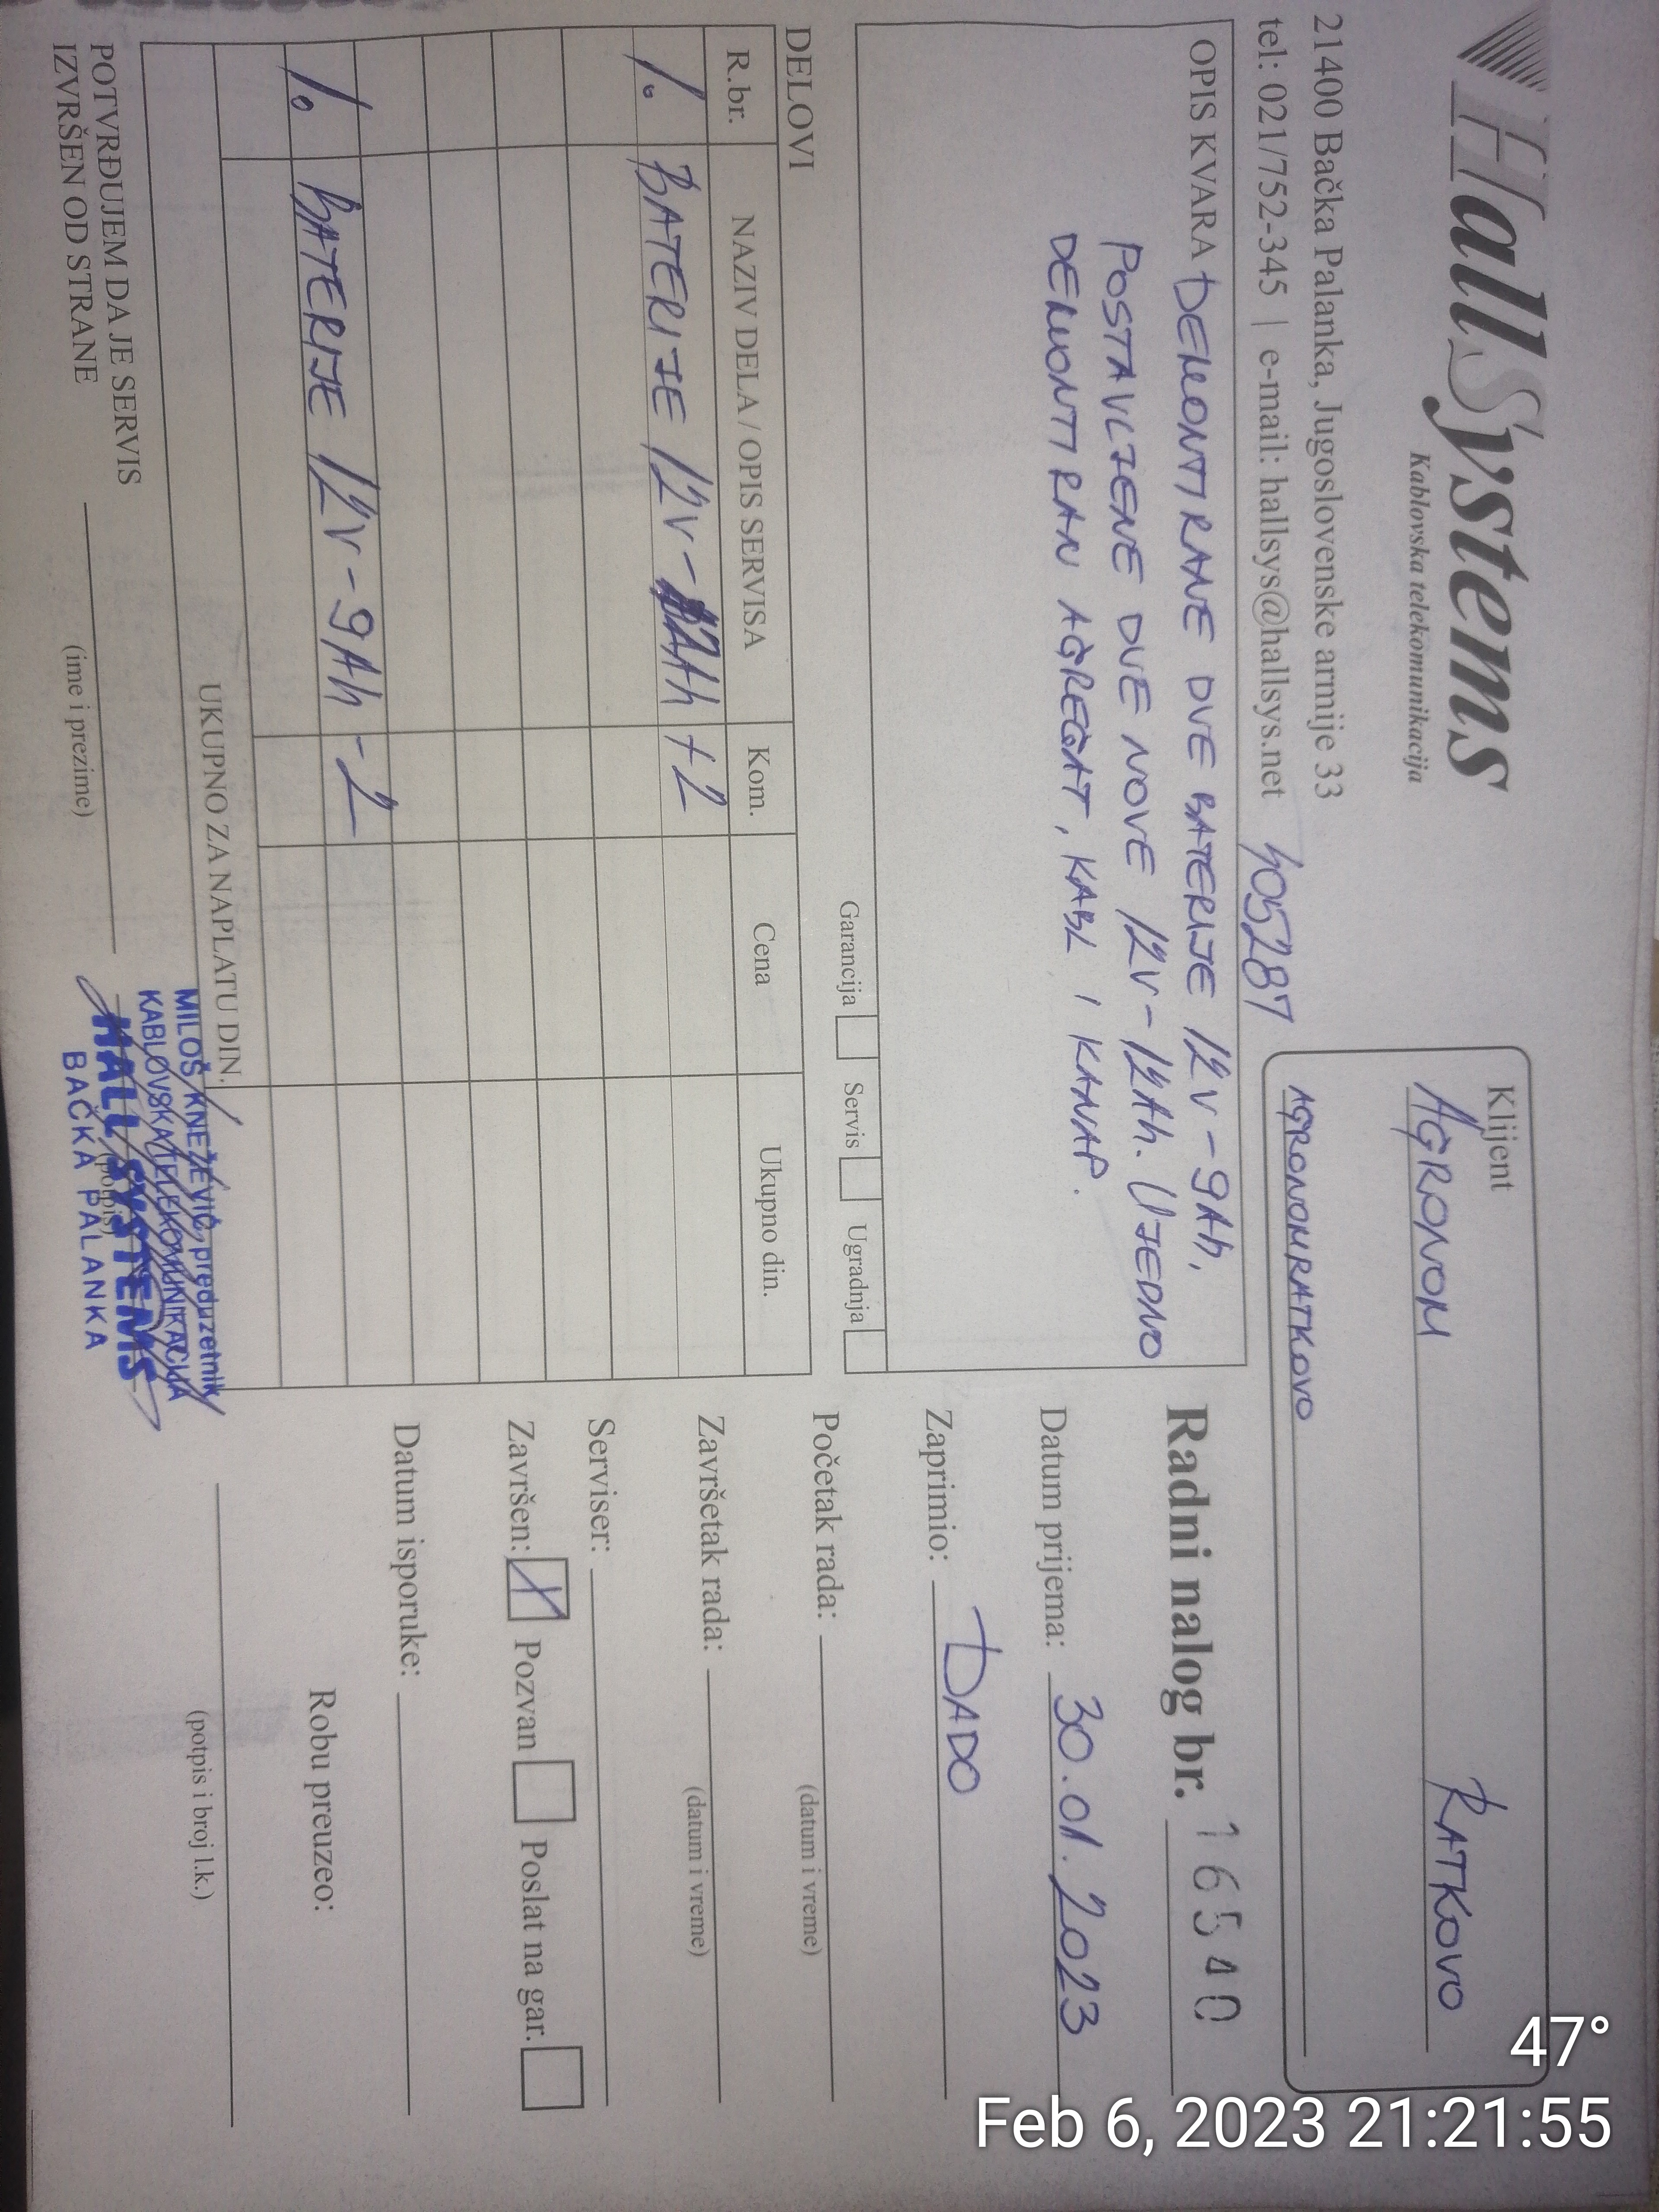 HallSystems
Kablovska telekomunikacija
21400 Bačka Palanka, Jugoslovenske armije 33
tel: 021/752-345 | e-mail: hallsys@hallsys.net
405287
Klijent
AGRONOM RATKOVO
AGRONOMRATKOVO
OPIS KVARA DEMONTIRANE DVE BATERIJE 12V-9Ah,
POSTAVLJENE DVE NOVE 12V-12Ah. UJEDNO
DEMONTIRAN AGREGAT, KABL I KANAP.
Garancija Servis Ugradnja
Radni nalog br. 16540
Datum prijema: 30.01.2023
Zaprimio: DADO
Početak rada:
(datum i vreme)
Završetak rada:
(datum i vreme)
Serviser:
Završen: X Pozvan Poslat na gar.
Datum isporuke:
Robu preuzeo:
(potpis i broj l.k.)
DELOVI
R.br. NAZIV DELA / OPIS SERVISA Kom. Cena Ukupno din.
1. BATERIJE 12V-12Ah +2
1. BATERIJE 12V-9Ah -2
UKUPNO ZA NAPLATU DIN.
POTVRĐUJEM DA JE SERVIS
IZVRŠEN OD STRANE
(ime i prezime)
(potpis)
MILOŠ KNEŽEVIĆ preduzetnik
KABLOVSKA TELEKOMUNIKACIJA
HALL SYSTEMS
BAČKA PALANKA
47°
Feb 6, 2023 21:21:55